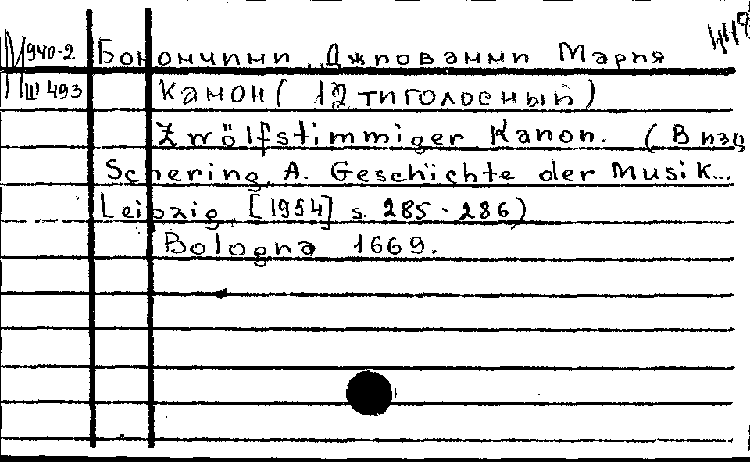 М 940-2 Бонончини, Джованни Мария
Ш 493 Канон (12тиголосный)
Zwölfstimmiger Kanon. (В изд
Schering, A. Geschichte der Musik...
Leipzig, [1954] s. 285-286)
Bologna 1669.